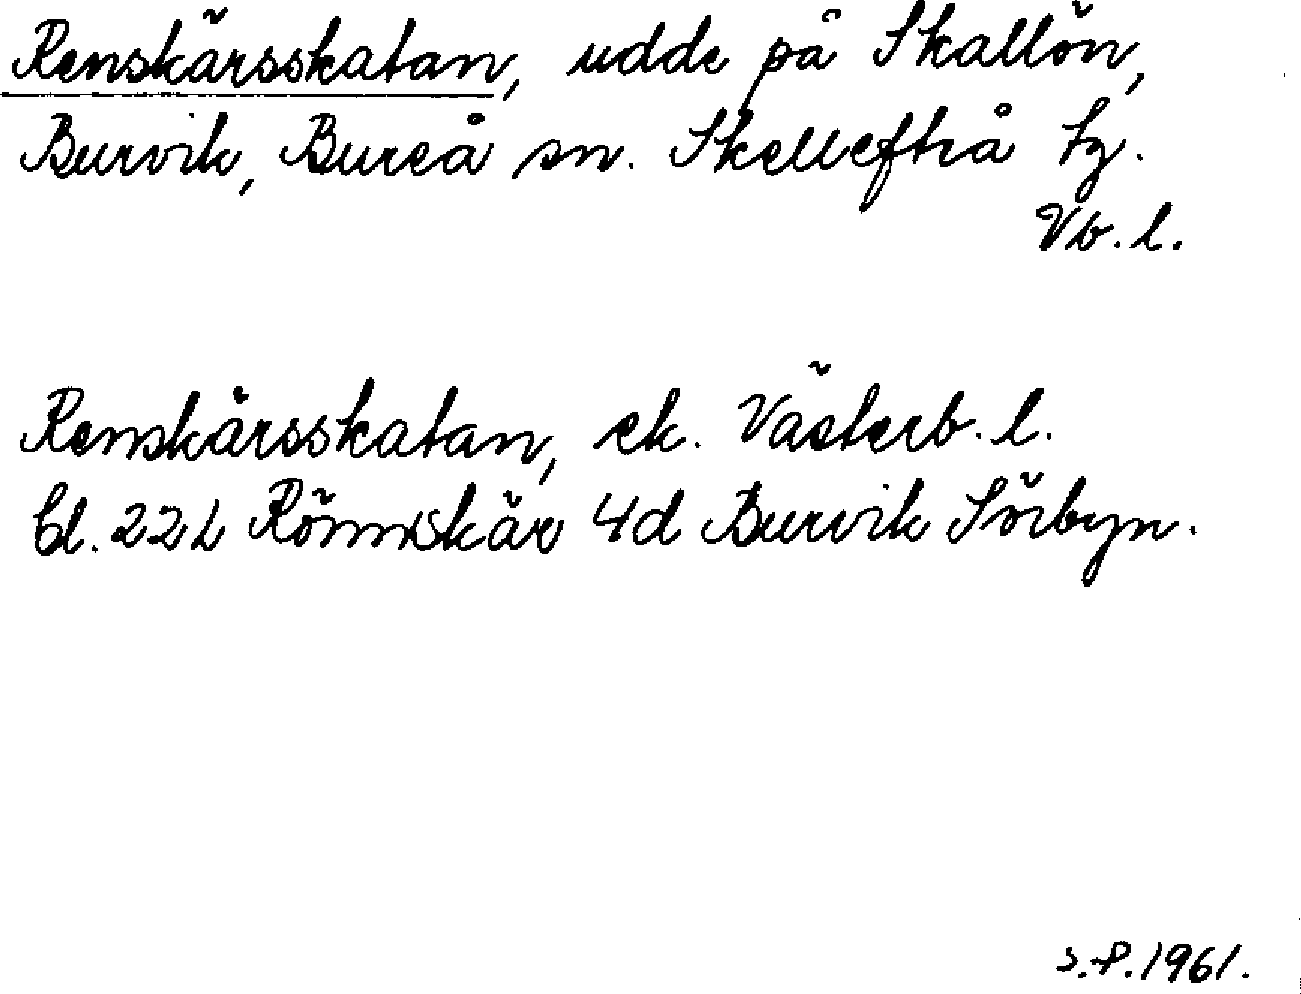 Renskärsskatan, udde på Skallön,
Burvik, Bureå sn. Skellefteå tg.
Vb. l.
Renskärsskatan, ek. Västerb. l.
bl. 22 L Rönnskär 4d Burvik Sörbyn.
S.P. 1961.